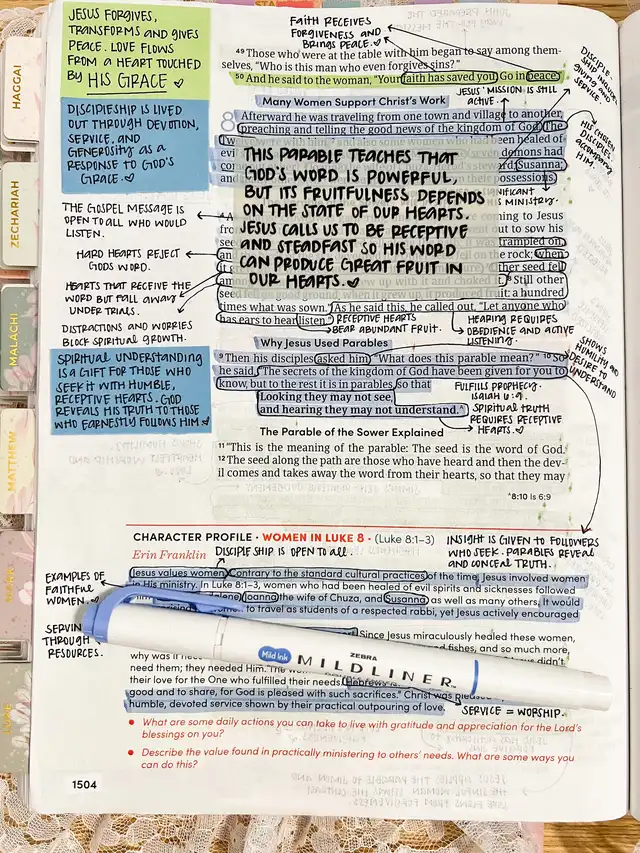 JESUS FORGIVES,
TRANSFORMS AND GIVES
PEACE. LOVE FLOWS
FROM A HEART TOUCHED
BY HIS GRACE
DISCIPLESHIP IS LIVED
OUT THROUGH DEVOTION,
SERVICE, AND
GENEROSITY AS A
RESPONSE TO GOD'S
GRACE.
THE GOSPEL MESSAGE IS
OPEN TO ALL WHO WOULD
LISTEN.
HARD HEARTS REJECT
GODS WORD.
HEARTS THAT RECEIVE THE
WORD BUT FALL AWAY
UNDER TRIALS.
DISTRACTIONS AND WORRIES
BLOCK SPIRITUAL GROWTH.
SPIRITUAL UNDERSTANDING
IS A GIFT FOR THOSE WHO
SEEK IT WITH HUMBLE,
RECEPTIVE HEARTS. GOD
REVEALS HIS TRUTH TO THOSE
WHO EARNESTLY FOLLOWS HIM
HAGGAI
ZECHARIAH
MALACHI
MATTHEW
MARK
LUKE
FAITH RECEIVES
FORGIVENESS AND
BRINGS PEACE.
49 Those who were at the table with him began to say among them-
selves, "Who is this man who even forgives sins?"
50 And he said to the woman, "Your faith has saved you. Go in peace."
JESUS' MISSION IS STILL
ACTIVE.
Many Women Support Christ's Work
8 Afterward he was traveling from one town and village to another,
preaching and telling the good news of the kingdom of God. The
THIS PARABLE TEACHES THAT
GOD'S WORD IS POWERFUL,
BUT ITS FRUITFULNESS DEPENDS
ON THE STATE OF OUR HEARTS.
JESUS CALLS US TO BE RECEPTIVE
AND STEADFAST SO HIS WORD
CAN PRODUCE GREAT FRUIT IN
OUR HEARTS.
healed of
demons had
Susanna,
possessions.
MINISTRY.
coming to Jesus
out to sow his
trampled on,
on the rock; when
Other seed fell
up with it and choked it. 8 Still other
seed fell on good ground; when it grew up, it produced fruit: a hundred
times what was sown." As he said this, he called out, "Let anyone who
has ears to hear listen."
RECEPTIVE HEARTS
BEAR ABUNDANT FRUIT.
HEARING REQUIRES
OBEDIENCE AND ACTIVE
LISTENING.
Why Jesus Used Parables
9 Then his disciples asked him, "What does this parable mean?" 10 So
he said, "The secrets of the kingdom of God have been given for you to
know, but to the rest it is in parables, so that
Looking they may not see,
and hearing they may not understand.
FULFILLS PROPHECY.
ISAIAH 6:9.
SPIRITUAL TRUTH
REQUIRES RECEPTIVE
HEARTS.
SHOWS
HUMILITY AND
DESIRE TO
UNDERSTAND
The Parable of the Sower Explained
11 "This is the meaning of the parable: The seed is the word of God.
12 The seed along the path are those who have heard and then the dev-
il comes and takes away the word from their hearts, so that they may
8:10 Is 6:9
CHARACTER PROFILE • WOMEN IN LUKE 8 • (Luke 8:1–3)
Erin Franklin
DISCIPLESHIP IS OPEN TO ALL.
INSIGHT IS GIVEN TO FOLLOWERS
WHO SEEK. PARABLES REVEAL
AND CONCEAL TRUTH.
EXAMPLES OF
FAITHFUL
WOMEN.
Jesus values women. Contrary to the standard cultural practices of the time, Jesus involved women
in His ministry. In Luke 8:1–3, women who had been healed of evil spirits and sicknesses followed
Joanna the wife of Chuza, and Susanna as well as many others. It would
to travel as students of a respected rabbi, yet Jesus actively encouraged
SERVING
THROUGH
RESOURCES.
Since Jesus miraculously healed these women,
fishes, and so much more,
why was it
need them; they needed Him.
their love for the One who fulfilled their needs.
good and to share, for God is pleased with such sacrifices." Christ was
humble, devoted service shown by their practical outpouring of love.
SERVICE = WORSHIP.
Mild Ink
ZEBRA
MILDLINER
• What are some daily actions you can take to live with gratitude and appreciation for the Lord's
blessings on you?
• Describe the value found in practically ministering to others' needs. What are some ways you
can do this?
1504